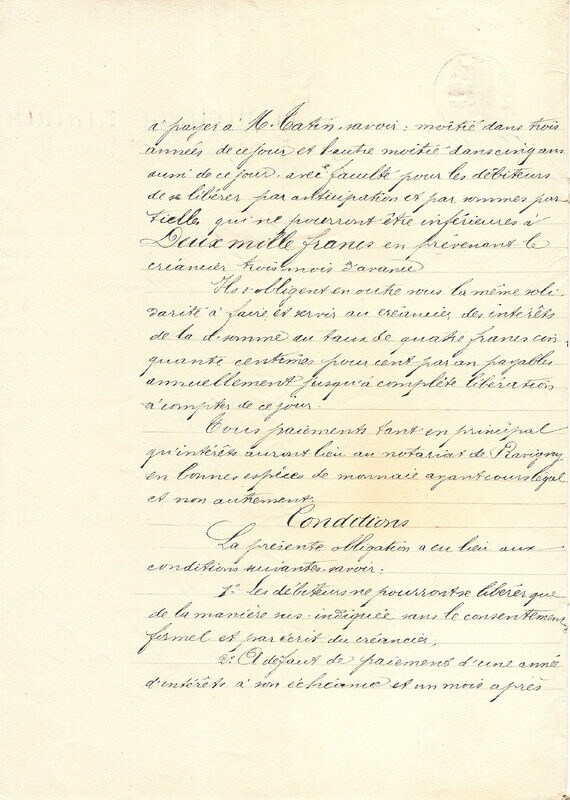 à payer à M. Catin, savoir : moitié dans trois
années de ce jour et l'autre moitié dans cinq ans
aussi de ce jour, avec faculté pour les débiteurs
de se libérer par anticipation et par sommes par
tielles qui ne pourront être inférieures à
Deux mille francs en prévenant le
créancier trois mois d'avance
Ils s'obligent en outre sous la même soli-
darité à faire et servir au créancier des intérêts
de la d. somme au taux de quatre francs cin
quante centimes pour cent par an payables
annuellement jusqu'à complète libération
à compter de ce jour.
Tous paiements tant en principal
qu'intérêts auront lieu au notariat de
en bonnes espèces de monnaie ayant cours légal
et non autrement.
Conditions
La présente obligation a eu lieu aux
conditions suivantes, savoir :
1º Les débiteurs ne pourront se libérer que
de la manière sus-indiquée sans le consentement
formel et par écrit du créancier.
2º A défaut de paiement d'une année
d'intérêts à son échéance et un mois après